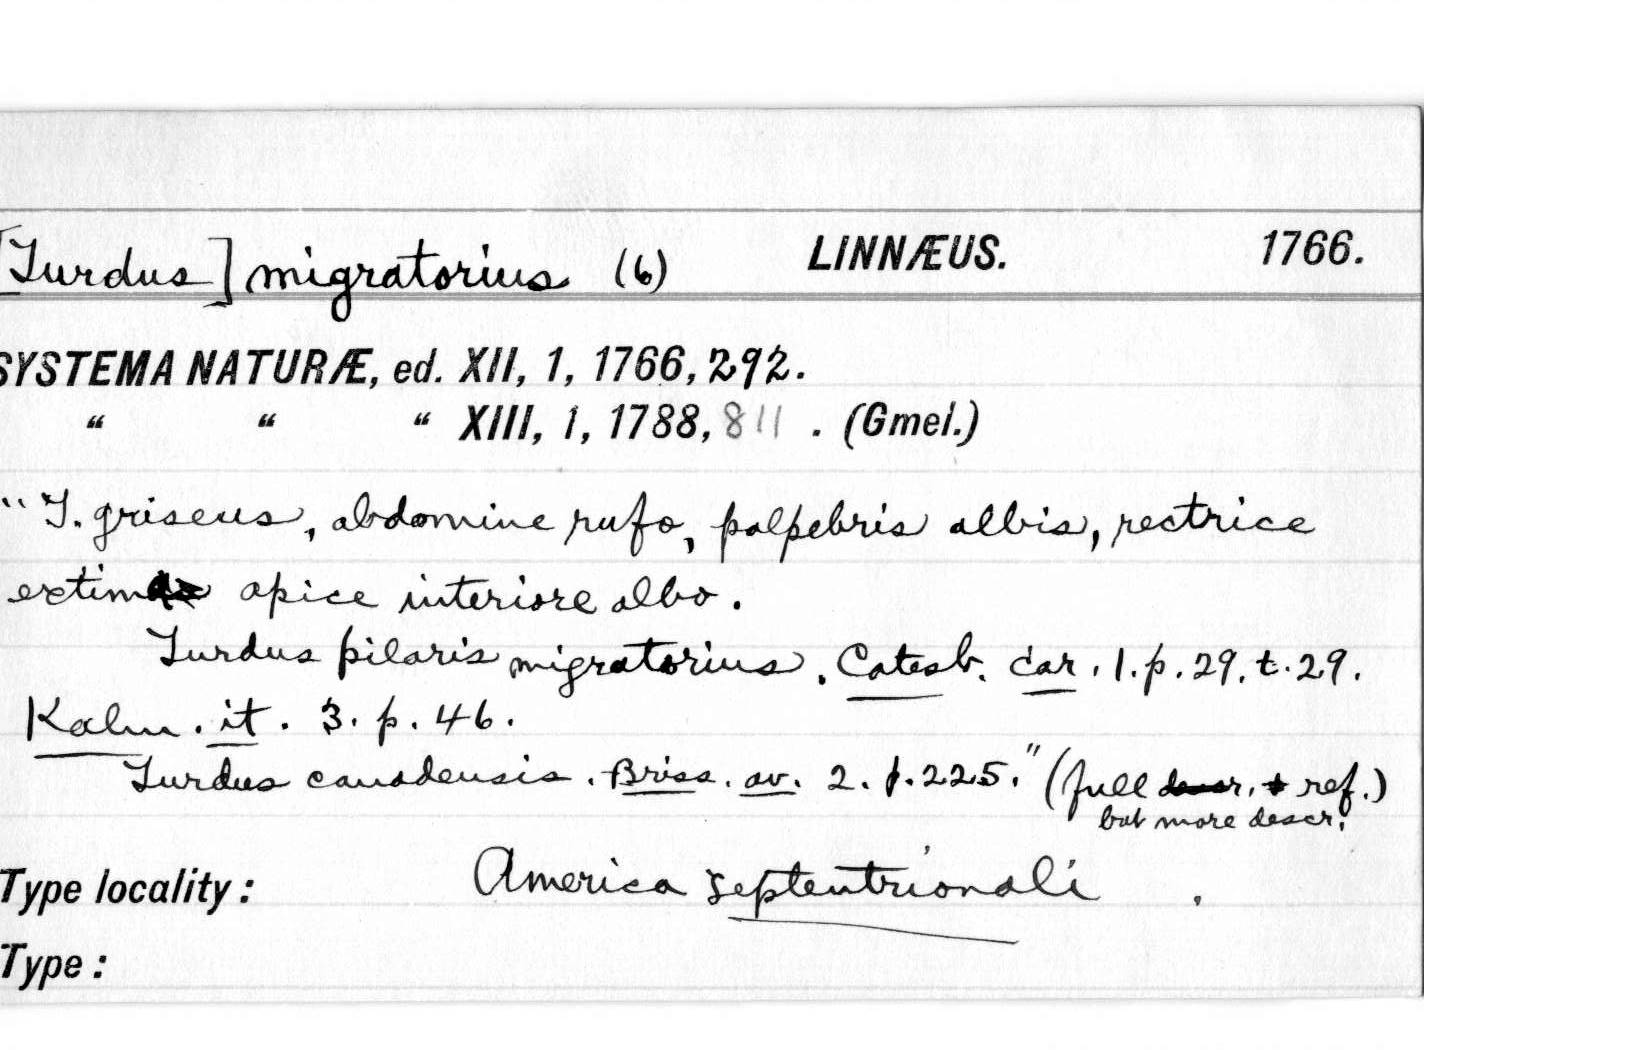 [Turdus] migratorius (6) LINNÆUS. 1766.
SYSTEMA NATURÆ, ed. XII, 1, 1766, 292.
“ “ “ XIII, 1, 1788, 811 . (Gmel.)
"T. griseus, abdomine rufo, palpebris albis, rectrice
extima apice interiore albo.
Turdus pilaris migratorius. Catesb. car. 1. p. 29. t. 29.
Kalm. it. 3. p. 46.
Turdus canadensis. Briss. av. 2. p. 225." (full descr. + ref.)
but more descr.
Type locality: America septentrionali .
Type: